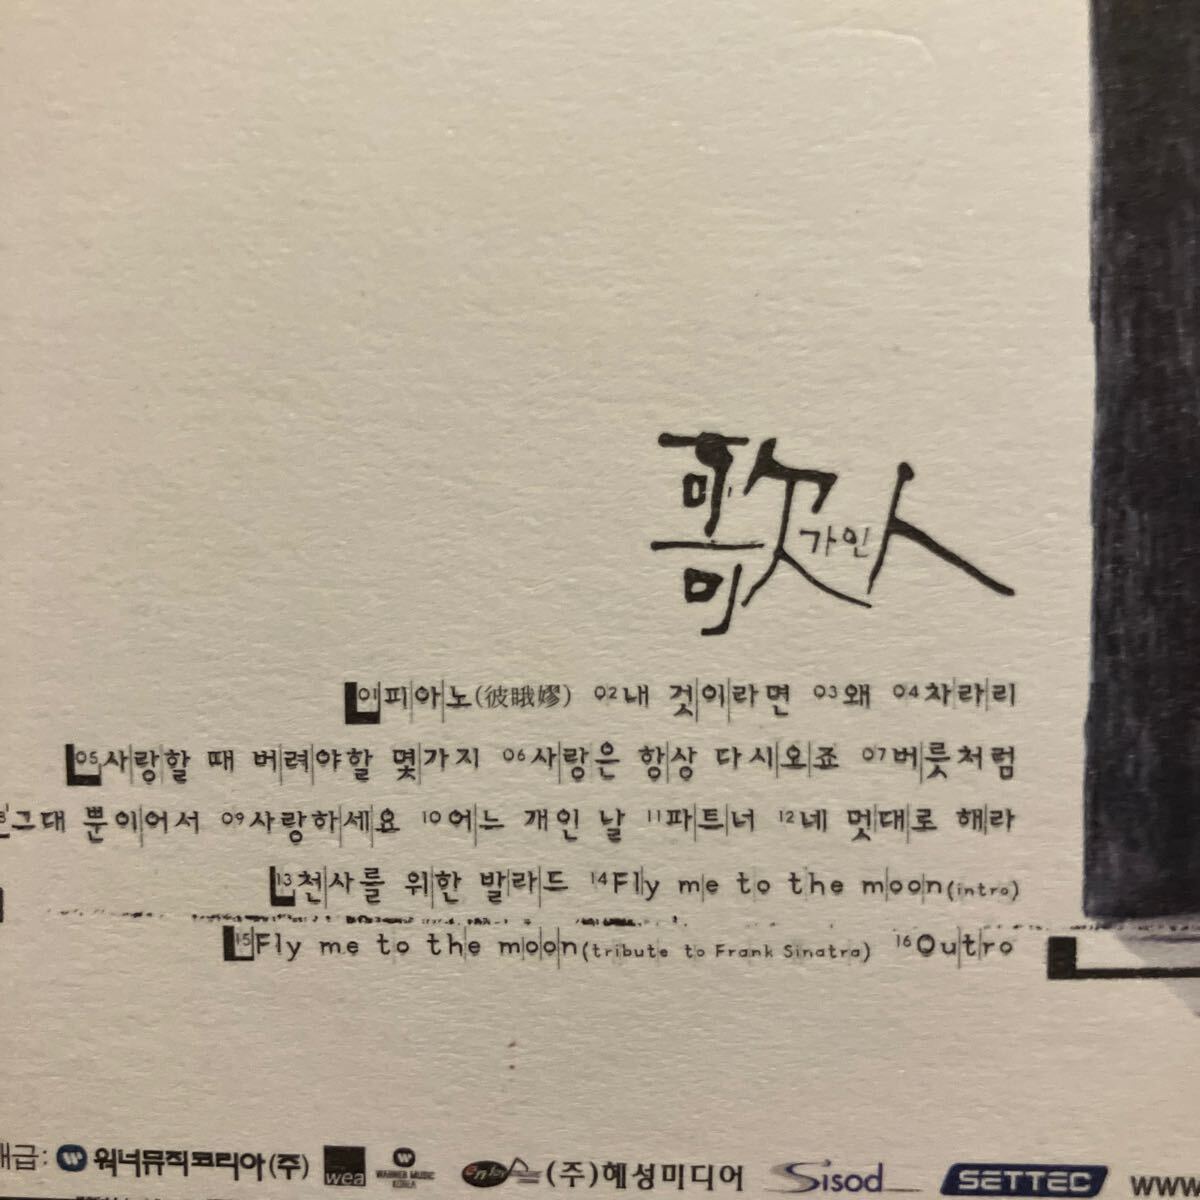 歌人
가인
01피아노(彼睋嫪) 02내 것이라면 03왜 04차라리
05사랑할 때 버려야할 몇가지 06사랑은 항상 다시오죠 07버릇처럼
그대 뿐이어서 09사랑하세요 10어느 개인 날 11파트너 12네 멋대로 해라
13천사를 위한 발라드 14Fly me to the moon(intro)
15Fly me to the moon(tribute to Frank Sinatra) 16Outro
급: 워너뮤직코리아(주) wea WARNER MUSIC KOREA (주)혜성미디어 Sisod SETTEC www